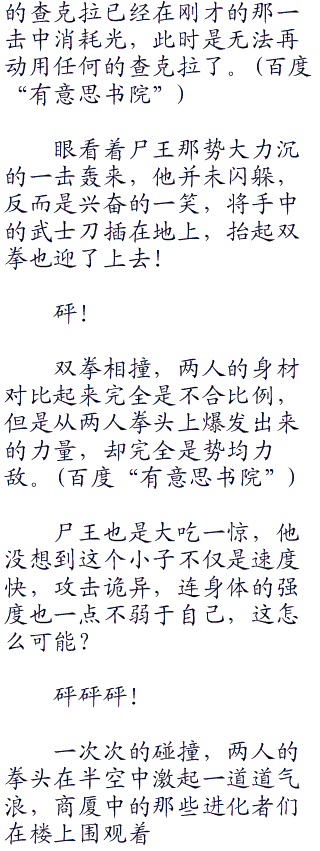 的查克拉已经在刚才的那一
击中消耗光，此时是无法再
动用任何的查克拉了。(百度
“有意思书院”)
眼看着尸王那势大力沉
的一击轰来，他并未闪躲，
反而是兴奋的一笑，将手中
的武士刀插在地上，抬起双
拳也迎了上去！
砰！
双拳相撞，两人的身材
对比起来完全是不合比例，
但是从两人拳头上爆发出来
的力量，却完全是势均力
敌。(百度“有意思书院”)
尸王也是大吃一惊，他
没想到这个小子不仅是速度
快，攻击诡异，连身体的强
度也一点不弱于自己，这怎
么可能？
砰砰砰！
一次次的碰撞，两人的
拳头在半空中激起一道道气
浪，商厦中的那些进化者们
在楼上围观着